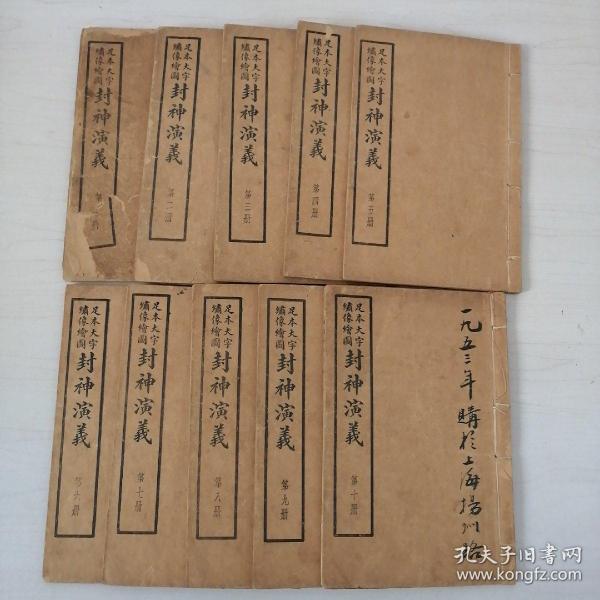 足本大字
繡像繪圖
封神演義
足本大字
繡像繪圖
封神演義
第二册
足本大字
繡像繪圖
封神演義
第三册
足本大字
繡像繪圖
封神演義
第四册
足本大字
繡像繪圖
封神演義
第五册
足本大字
繡像繪圖
封神演義
第六册
足本大字
繡像繪圖
封神演義
第七册
足本大字
繡像繪圖
封神演義
第八册
足本大字
繡像繪圖
封神演義
第九册
足本大字
繡像繪圖
封神演義
第十册
一九五三年購於上海揚州路
孔夫子旧书网
www.kongfz.com